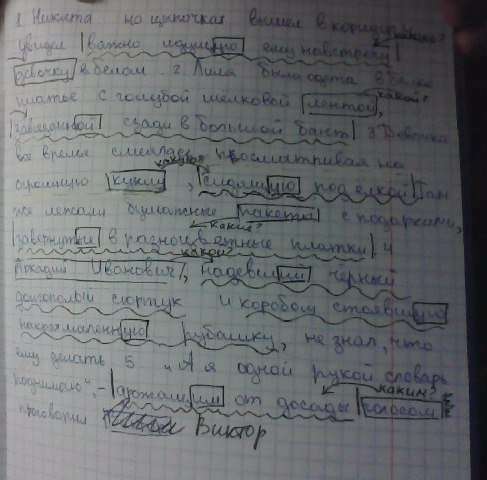 1 Никита на цыпочках вышел в коридор какую?
увидел важно идущую ему навстречу
девочку в белом. 2. Лиля была одета в белое
платье с голубой шелковой лентой, какой?
завязанной сзади в большой бант 3 Девочка
всё время смеялась просматривая на
какую?
огромную куклу, сидящую под ёлкой Там
же лежали бумажные пакеты с подарками,
какие?
завернутые в разноцветные платки 4
какой?
Аркадий Иванович, надевший чёрный
долгополый сюртук и коробом стоявшую
накрахмаленную рубашку, не знал, что
ему делать 5 „А я одной рукой словарь
каким?
поднимаю", - дрожащим от досады голосом
проговорил Виктор